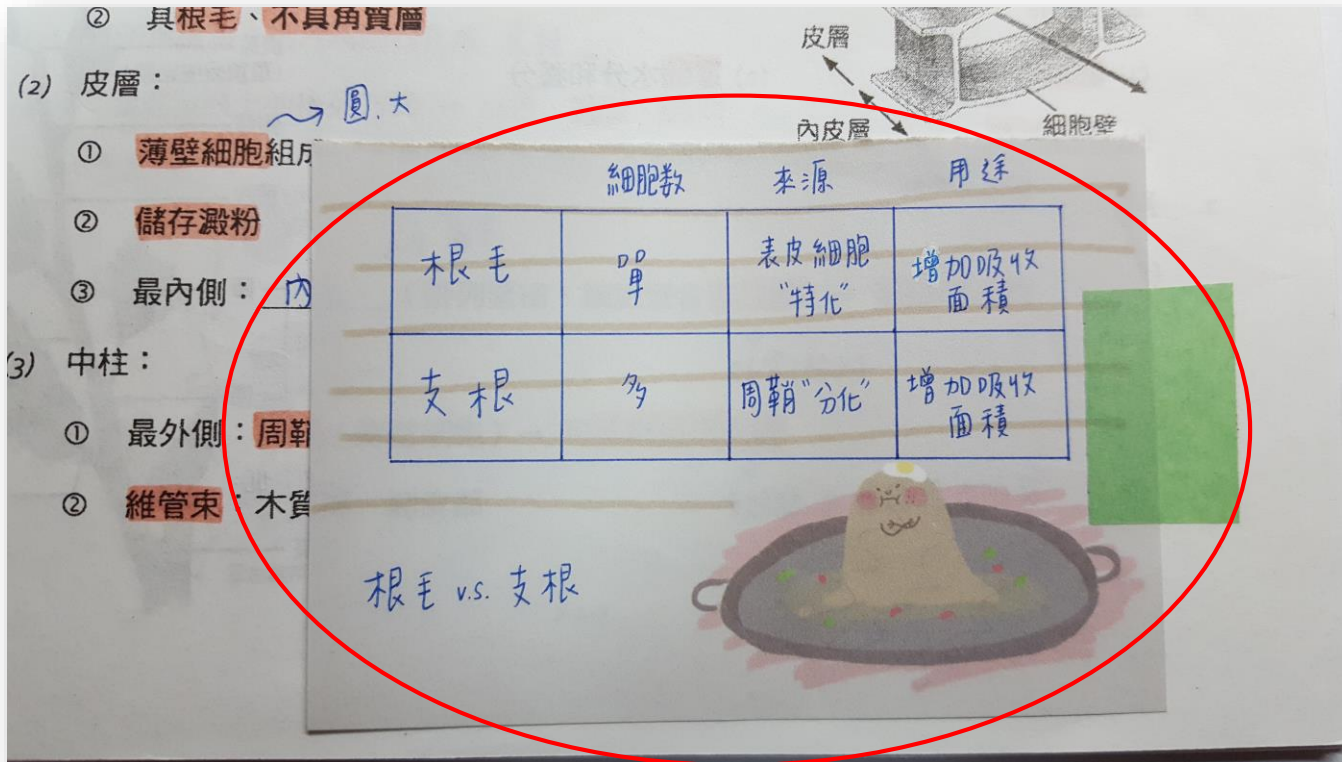 ② 具根毛、不具角質層
(2) 皮層：
圓.大
① 薄壁細胞組成
② 儲存澱粉
③ 最內側：內
(3) 中柱：
① 最外側：周鞘
② 維管束：木質
皮層
內皮層
細胞壁
細胞数 來源 用途
根毛 單 表皮細胞 增加吸收
"特化" 面積
支根 多 周鞘"分化" 增加吸收
面積
根毛 v.s. 支根